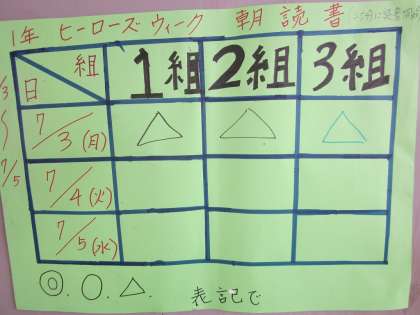 1年 ヒーローズウィーク 朝読書
組
日
1組 2組 3組
7/3(月) △ △ △
7/4(火)
7/5(水)
7/5
◎. ○. △. 表記で